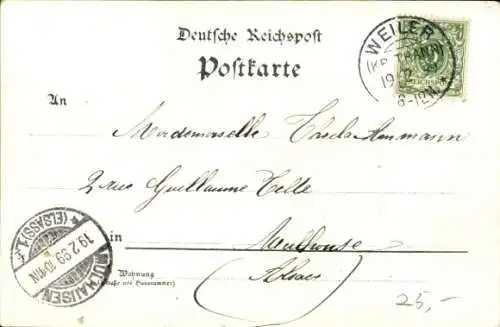 Deutsche Reichspost
Postkarte
WEILER
(KR. THANN)
19 2
8-10N.
An
Mademoiselle Ammann
2 rue Guillaume Telle
in Mulhouse
Wohnung
(Straße und Hausnummer)
(Alsace)
MÜLHAUSEN
19.2.99.10-11N
*(ELSASS)1.*
25,-